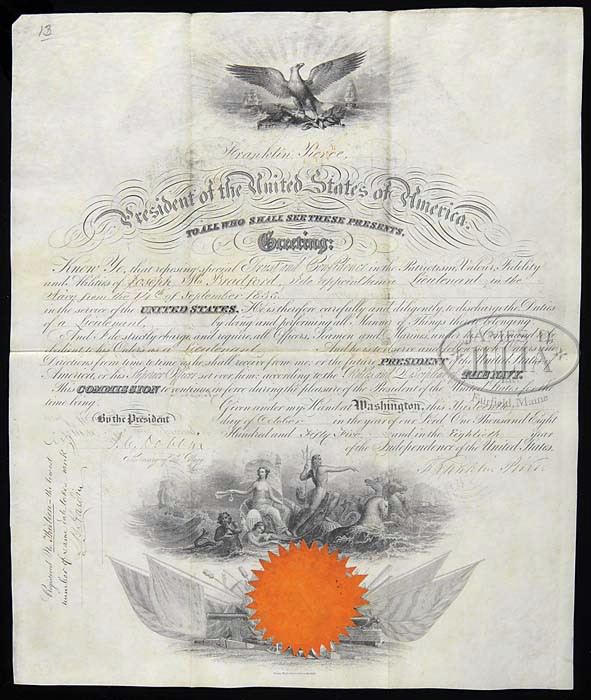 13
Franklin Pierce,
President of the United States of America.
TO ALL WHO SHALL SEE THESE PRESENTS,
Greeting:
Know Ye, that reposing special Trust and Confidence in the Patriotism, Valour, Fidelity
and Abilities of Joseph M. Bradford I do appoint him a Lieutenant in the
Navy from the 14th of September 1855
in the service of the UNITED STATES. He is therefore carefully and diligently to discharge the Duties
of a Lieutenant by doing and performing all Manner of Things thereto belonging.
And I do strictly charge, and require all Officers, Seamen and Marines under his Command to be
obedient to his Orders as a Lieutenant And he is to observe and follow such Orders and
Directions from time to time as he shall receive from me or the future PRESIDENT of the United States of
America, or his Superior Officer set over him, according to the Rules and Discipline of THE NAVY.
This COMMISSION to continue in force during the pleasure of the President of the United States for the
time being.
Given under my Hand at Washington, this
By the President
day of October in the year of our Lord One Thousand Eight
Hundred and Fifty Five and in the Eightieth year
J. C. Dobbin
of the Independence of the United States.
Secretary of the Navy
Franklin Pierce
Registered No Thirteen - the lowest
number of same date takes rank
JAMES D.
JULIA
Fairfield, Maine